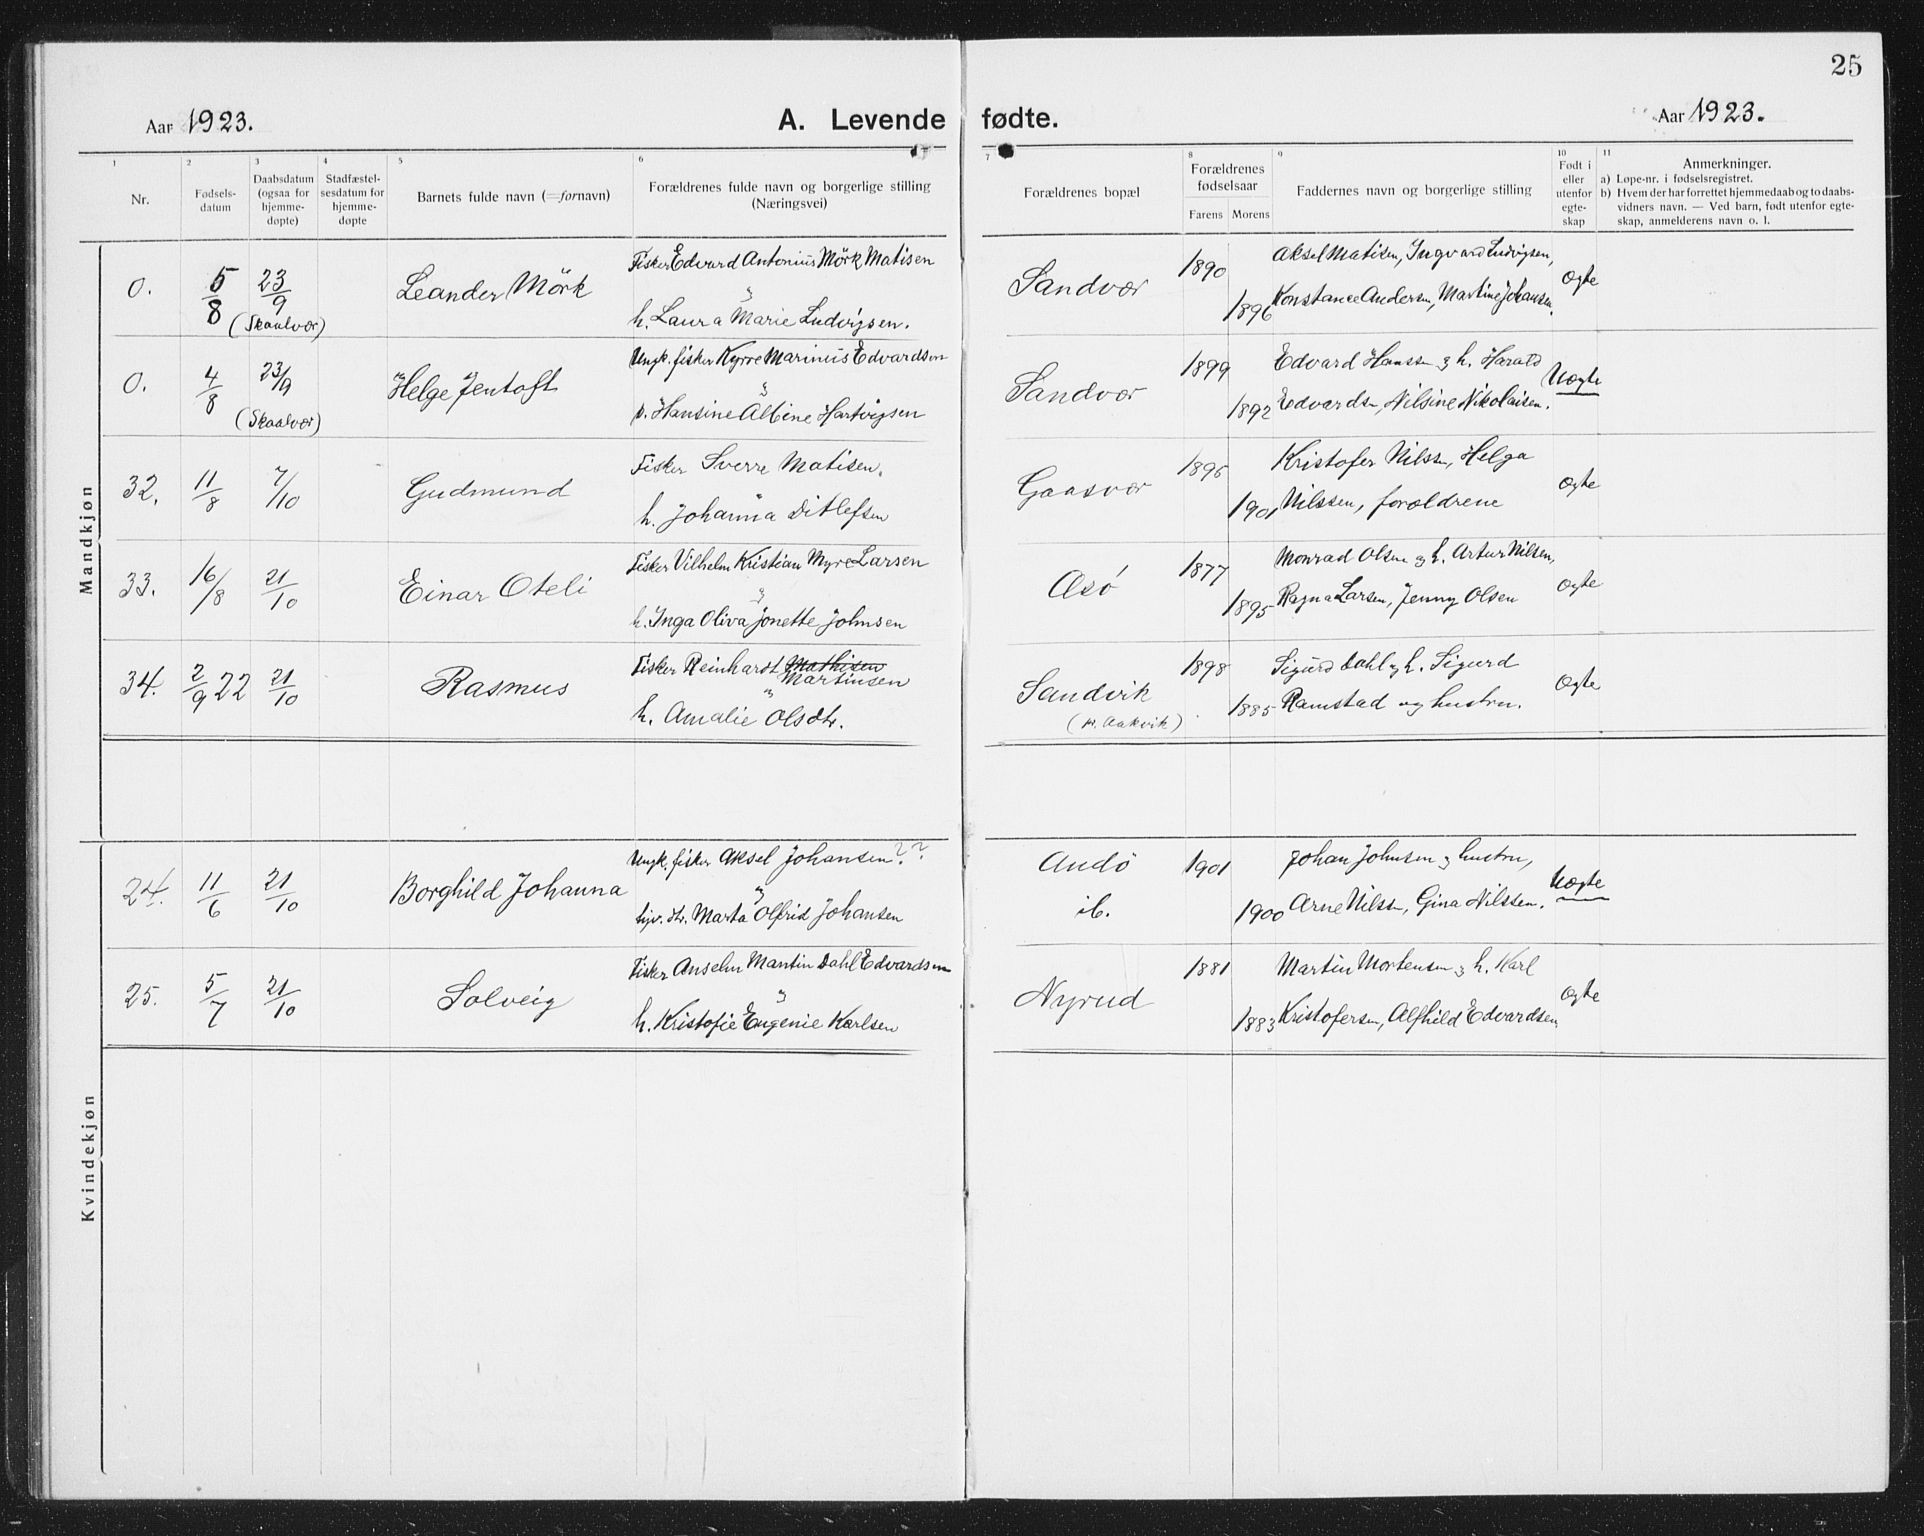 25
Aar 1923. A. Levende fødte. Aar 1923.
1 2 3 4 5 6 7 8 9 10 11
Nr.
Fødsels-
datum
Daabsdatum
(ogsaa for
hjemme-
døpte)
Stadfæstel-
sesdatum for
hjemme-
døpte
Barnets fulde navn (=fornavn)
Forældrenes fulde navn og borgerlige stilling
(Næringsvei)
Forældrenes bopæl
Forældrenes
fødselsaar
Farens Morens
Faddernes navn og borgerlige stilling
Født i
eller
utenfor
egte-
skap
Anmerkninger.
a) Løpe-nr. i fødselsregistret.
b) Hvem der har forrettet hjemmedaab og to daabs-
vidners navn. — Ved barn, født utenfor egte-
skap, anmelderens navn o. l.
Mandkjøn
0. 5/8 23/9 (Skaalvær) Leander Mörk
Fisker Edvard Antonius Mörk Matisen
"
h. Laura Marie Ludvigsen.
Sandvær 1890 1896
Aksel Matisen, Ingvard Ludvigsen,
Konstance Andersen, Martine Johansen.
Ægte
0. 4/8 23/9 (Skaalvær) Helge Jentoft
Ungk. fisker Kyrre Marinus Edvardsen
"
p. Hansine Albine Hartvigsen
Sandvær 1899 1892
Edvard Hanssen og h. Harald
Edvardsen, Nilsine Nikolaisen.
Uægte
32. 11/8 7/10 Gudmund
Fisker Sverre Matisen.
"
h. Johanna Ditlefsen
Gaasvær 1896 1901
Kristofer Nilssen, Helga
Nilssen, forældrene
Ægte
33. 16/8 21/10 Einar Oteli
Fisker Vilhelm Kristian Myre Larsen
"
h. Inga Oliva Jonette Johnsen
Æsö 1877 1895
Monrad Olsen og h. Artur Nilsen,
Ragna Larsen, Jenny Olsen
Ægte
34. 2/9 22 21/10 Rasmus
Fisker Reinhardt Mathisen
Martinsen
"
h. Amalie Olsdtr.
Sandvik
(p. Aakvik)
1898 1885
Sigurd Dahl og h. Sigurd
Ramstad og hustru.
Ægte
Kvindekjøn
24. 11/6 21/10 Borghild Johanna
Ungk. fisker Aksel Johansen??
"
Marta Olfrid Johansen
Andö
ib.
1901 1900
Johan Johnsen og hustru,
Arne Nilssen, Gina Nilssen.
Uægte
25. 5/7 21/10 Solveig
Fisker Anselm Mantin Dahl Edvardsen
"
h. Kristofie Eugenie Karlsen
Nyrud 1881 1883
Martin Mortensen og h. Karl
Kristofersen, Alfhild Edvardsen,
Ægte